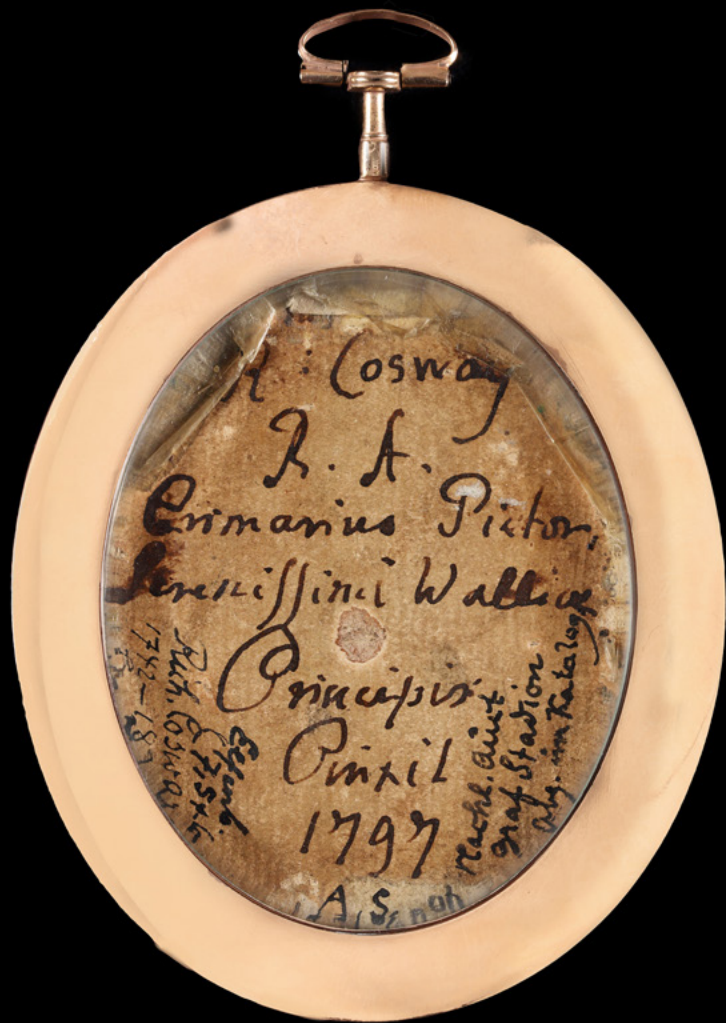 R : Cosway
R. A.
Primarius Pictor
Serenissimi Walliae
Principis
Pinxit
1797
A S
Rich. Cosway
1742-182
Nachl. Aukt
Graf Stadion
Abg. im Kataloge